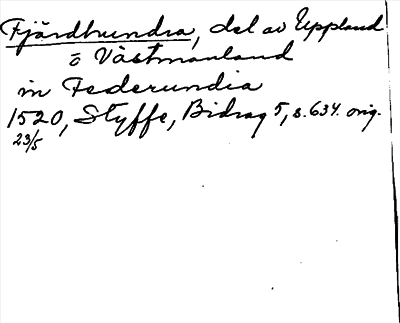 Fjärdhundra, del av Uppland
o Västmanland
in Federundia
1520, Styffe, Bidrag 5, s. 634. orig.
23/5